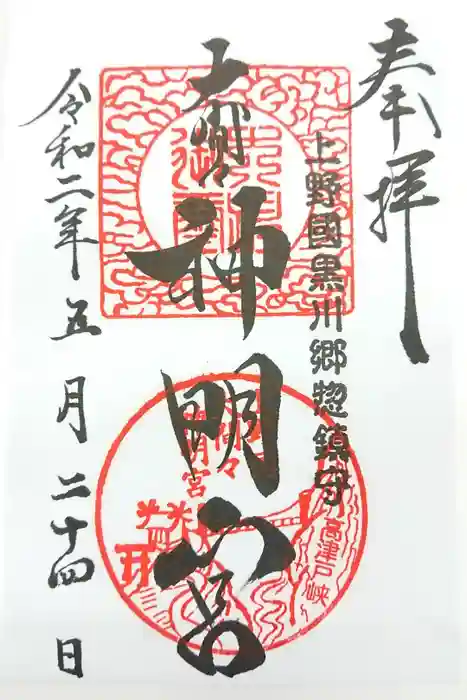 奉拝
上野國黒川郷惣鎮守
大間々
神明宮
令和二年五月二十四日
高津戸峡